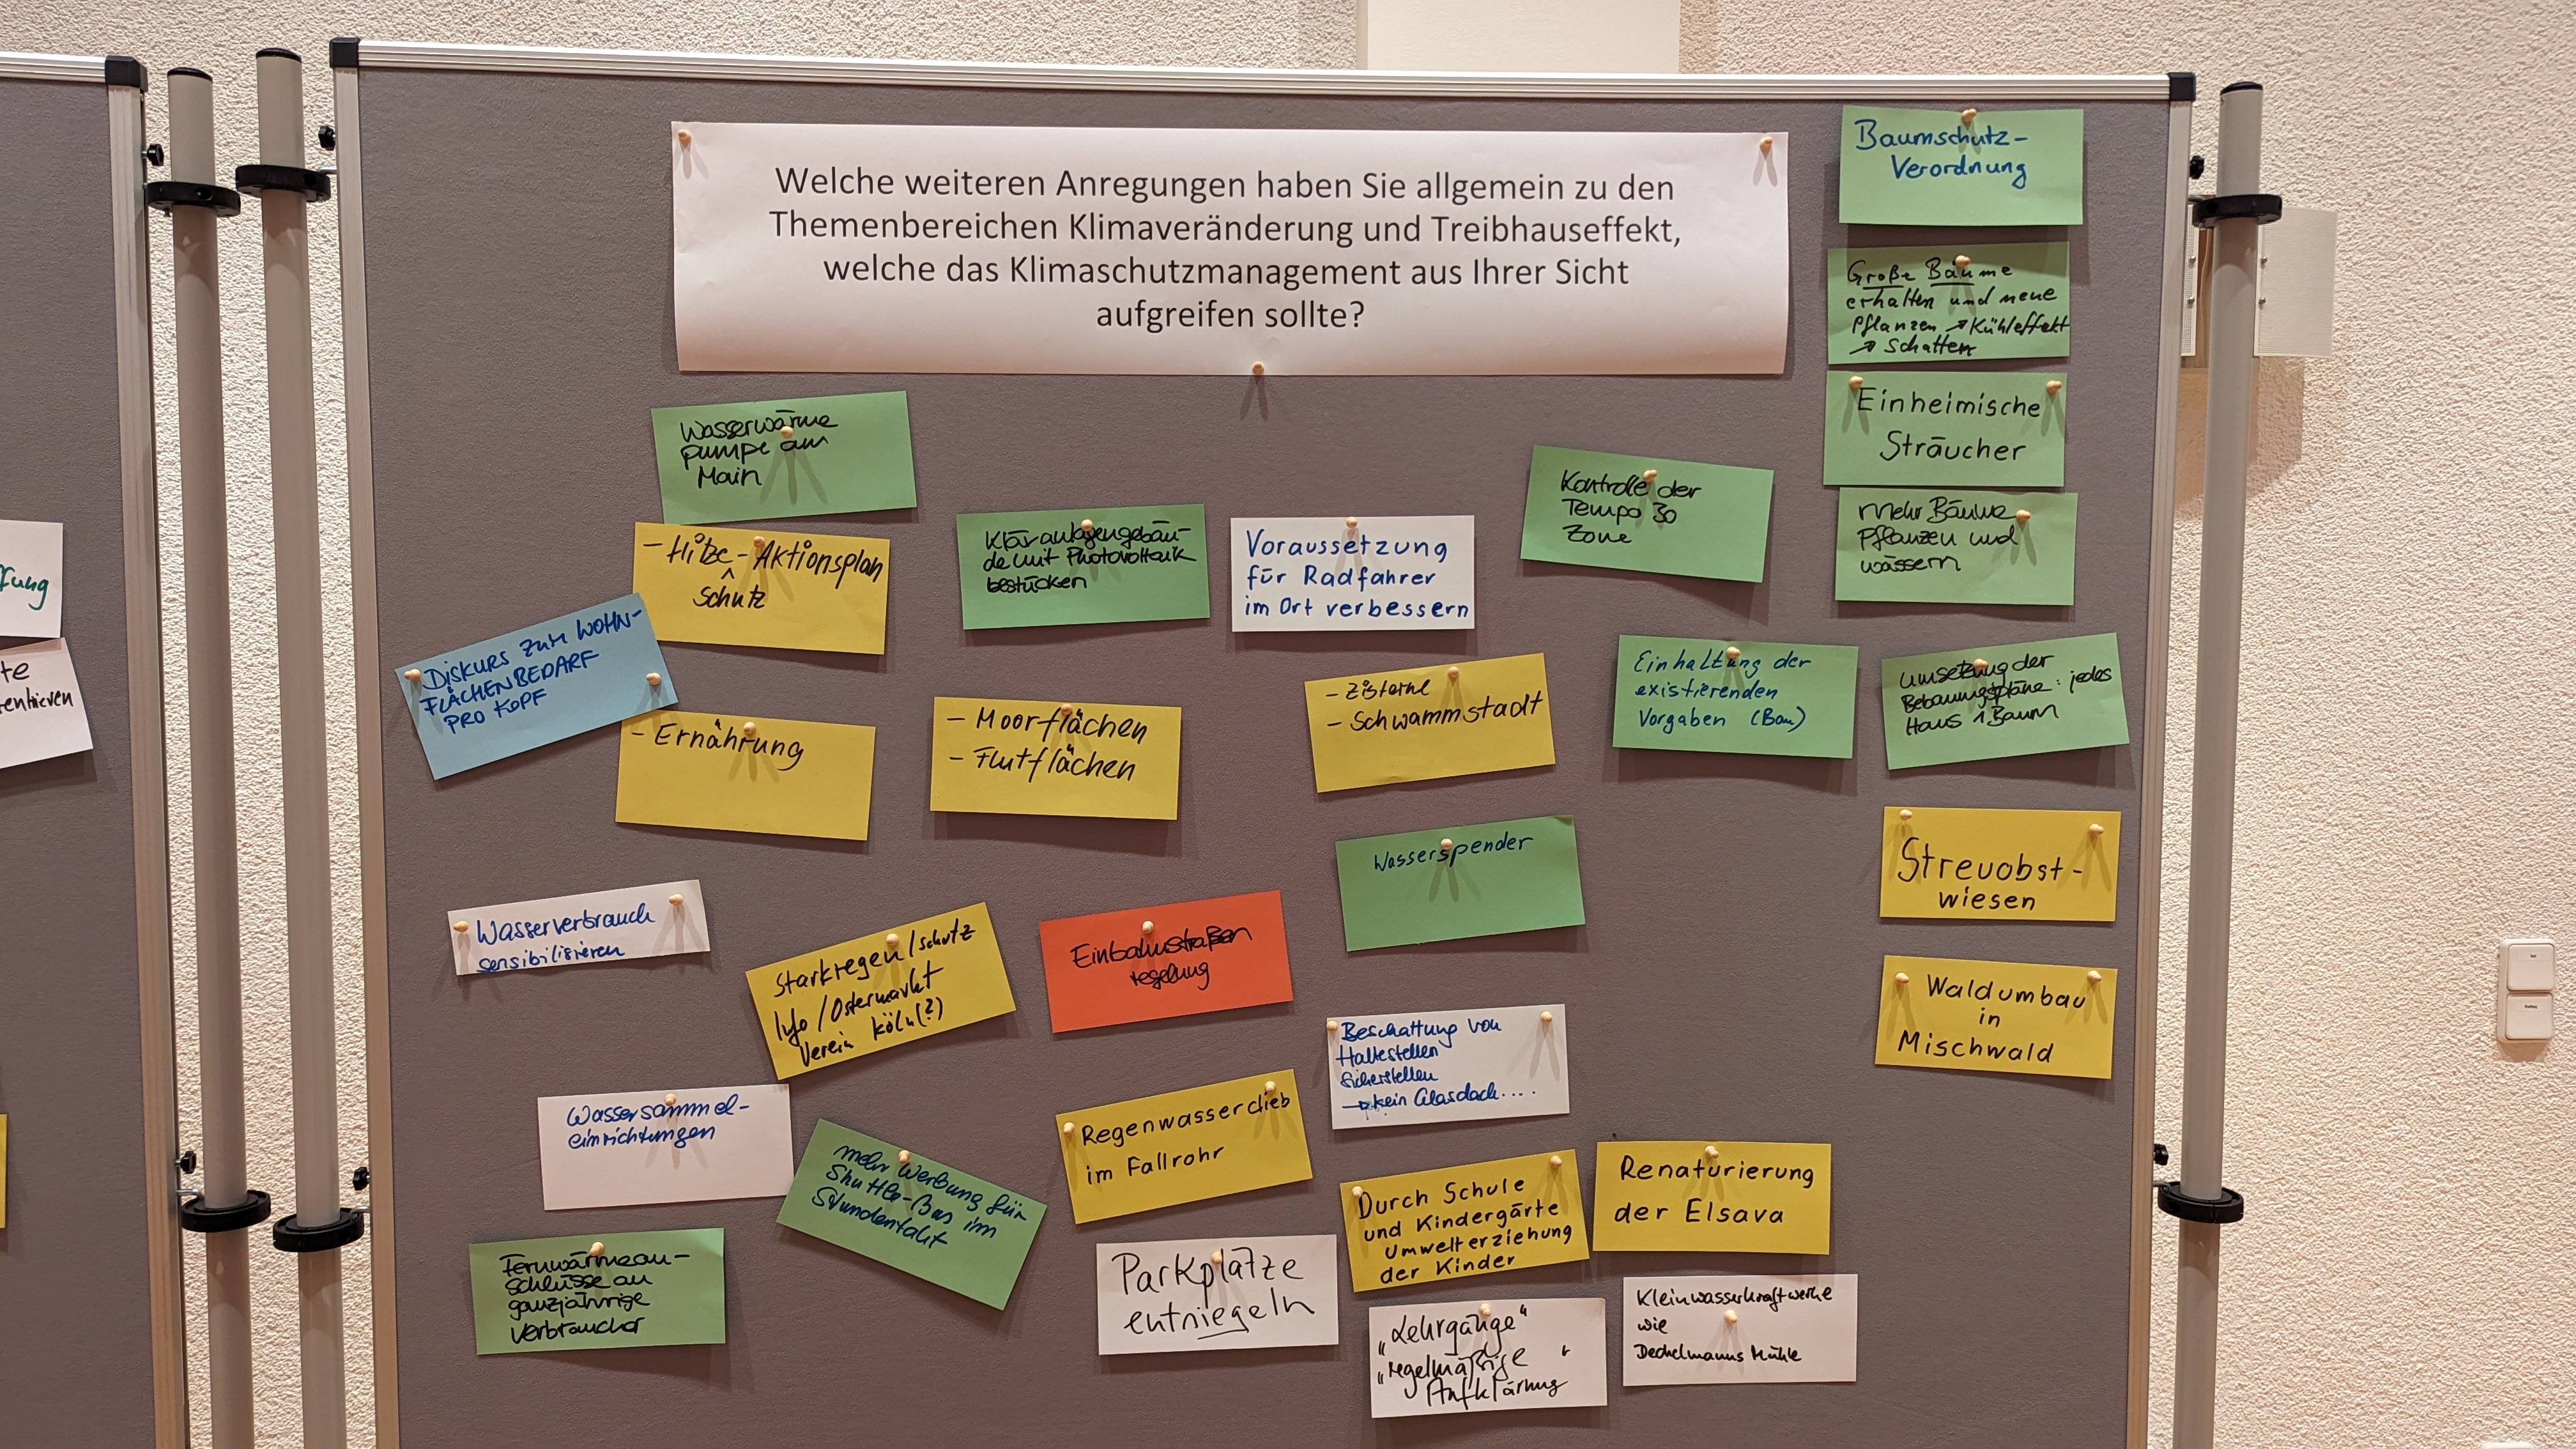 Welche weiteren Anregungen haben Sie allgemein zu den
Themenbereichen Klimaveränderung und Treibhauseffekt,
welche das Klimaschutzmanagement aus Ihrer Sicht
aufgreifen sollte?
Baumschutz-
Verordnung
Große Bäume
erhalten und neue
pflanzen ↗ Kühleffekt
↗ Schatten
Einheimische
Sträucher
mehr Bäume
pflanzen und
wässern
Wasserwärme
pumpe am
Main
- Hitze-Aktionsplan
^
Schutz
Kläranlagengebäu-
de mit Photovoltaik
bestücken
Voraussetzung
für Radfahrer
im Ort verbessern
Kontrolle der
Tempo 30
Zone
DISKURS ZUM WOHN-
FLÄCHENBEDARF
PRO KOPF
- Ernährung
- Moorflächen
- Flutflächen
- Zisterne
- Schwammstadt
Einhaltung der
existierenden
Vorgaben (Bau)
Umsetzung der
Bebauungspläne: jedes
Haus 1 Baum
Wasserspender
Streuobst-
wiesen
Wasserverbrauch
sensibilisieren
Starkregen/schutz
Info/Ostermarkt
Verein Köln(?)
Einbahnstraßen
regelung
Waldumbau
in
Mischwald
Beschattung von
Haltestellen
sicherstellen
→ kein Glasdach....
Wassersammel-
einrichtungen
mehr Werbung für
Shuttle-Bus im
Stundentakt
Regenwasserdieb
im Fallrohr
Durch Schule
und Kindergärte
Umwelterziehung
der Kinder
Renaturierung
der Elsava
Fernwärmean-
schlüsse an
ganzjährige
Verbraucher
Parkplätze
entniegeln
„Lehrgänge“
„regelmäßige “
Aufklärung
Kleinwasserkraftwerke
wie
Deckelmanns Mühle
fung
te
entieren